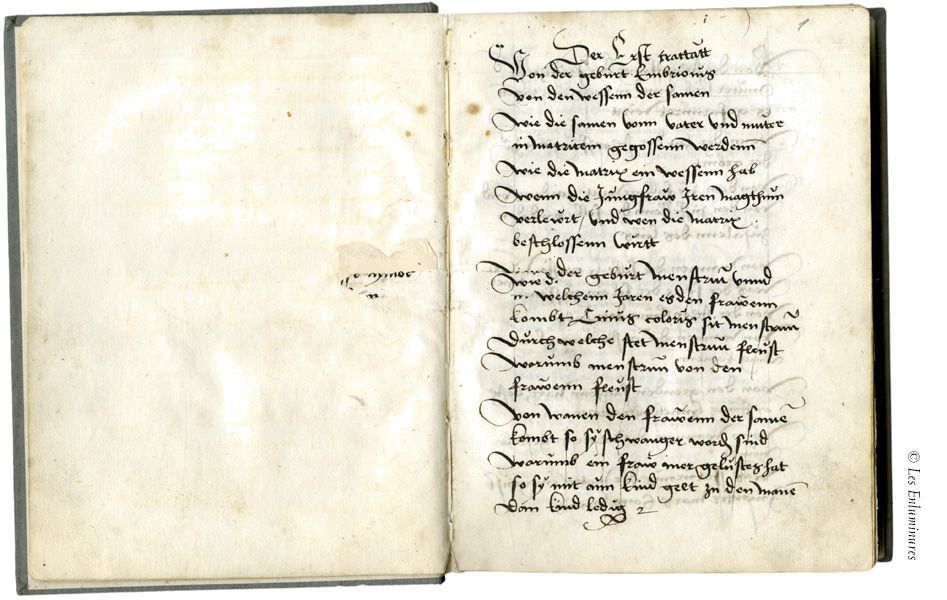 1
Der Erst trattatt
Von der geburt Embrionis
von den wessenn der samen
wie die samen vonn vater vnd muter
in matricem gegossenn werdenn
wie die matrix ein wessenn hab
wenn die Jungfraw Jren magthun
verleurt / vnd wen die matrix
beschlossenn wirtt
wie der geburt menstruū vnnd
welchenn Jaren es den frawenn
kombt Cuius coloris sit menstruū
durch welche stet menstruū fleust
warumb menstruū von den
frawenn fleust
von wanen den frawenn der samē
kombt so sy schwanger worden sind
warumb ein fraw mer gelustes hat
so sy mit aim kind geet zu den manē
dan kind ledig
© Les Enluminures